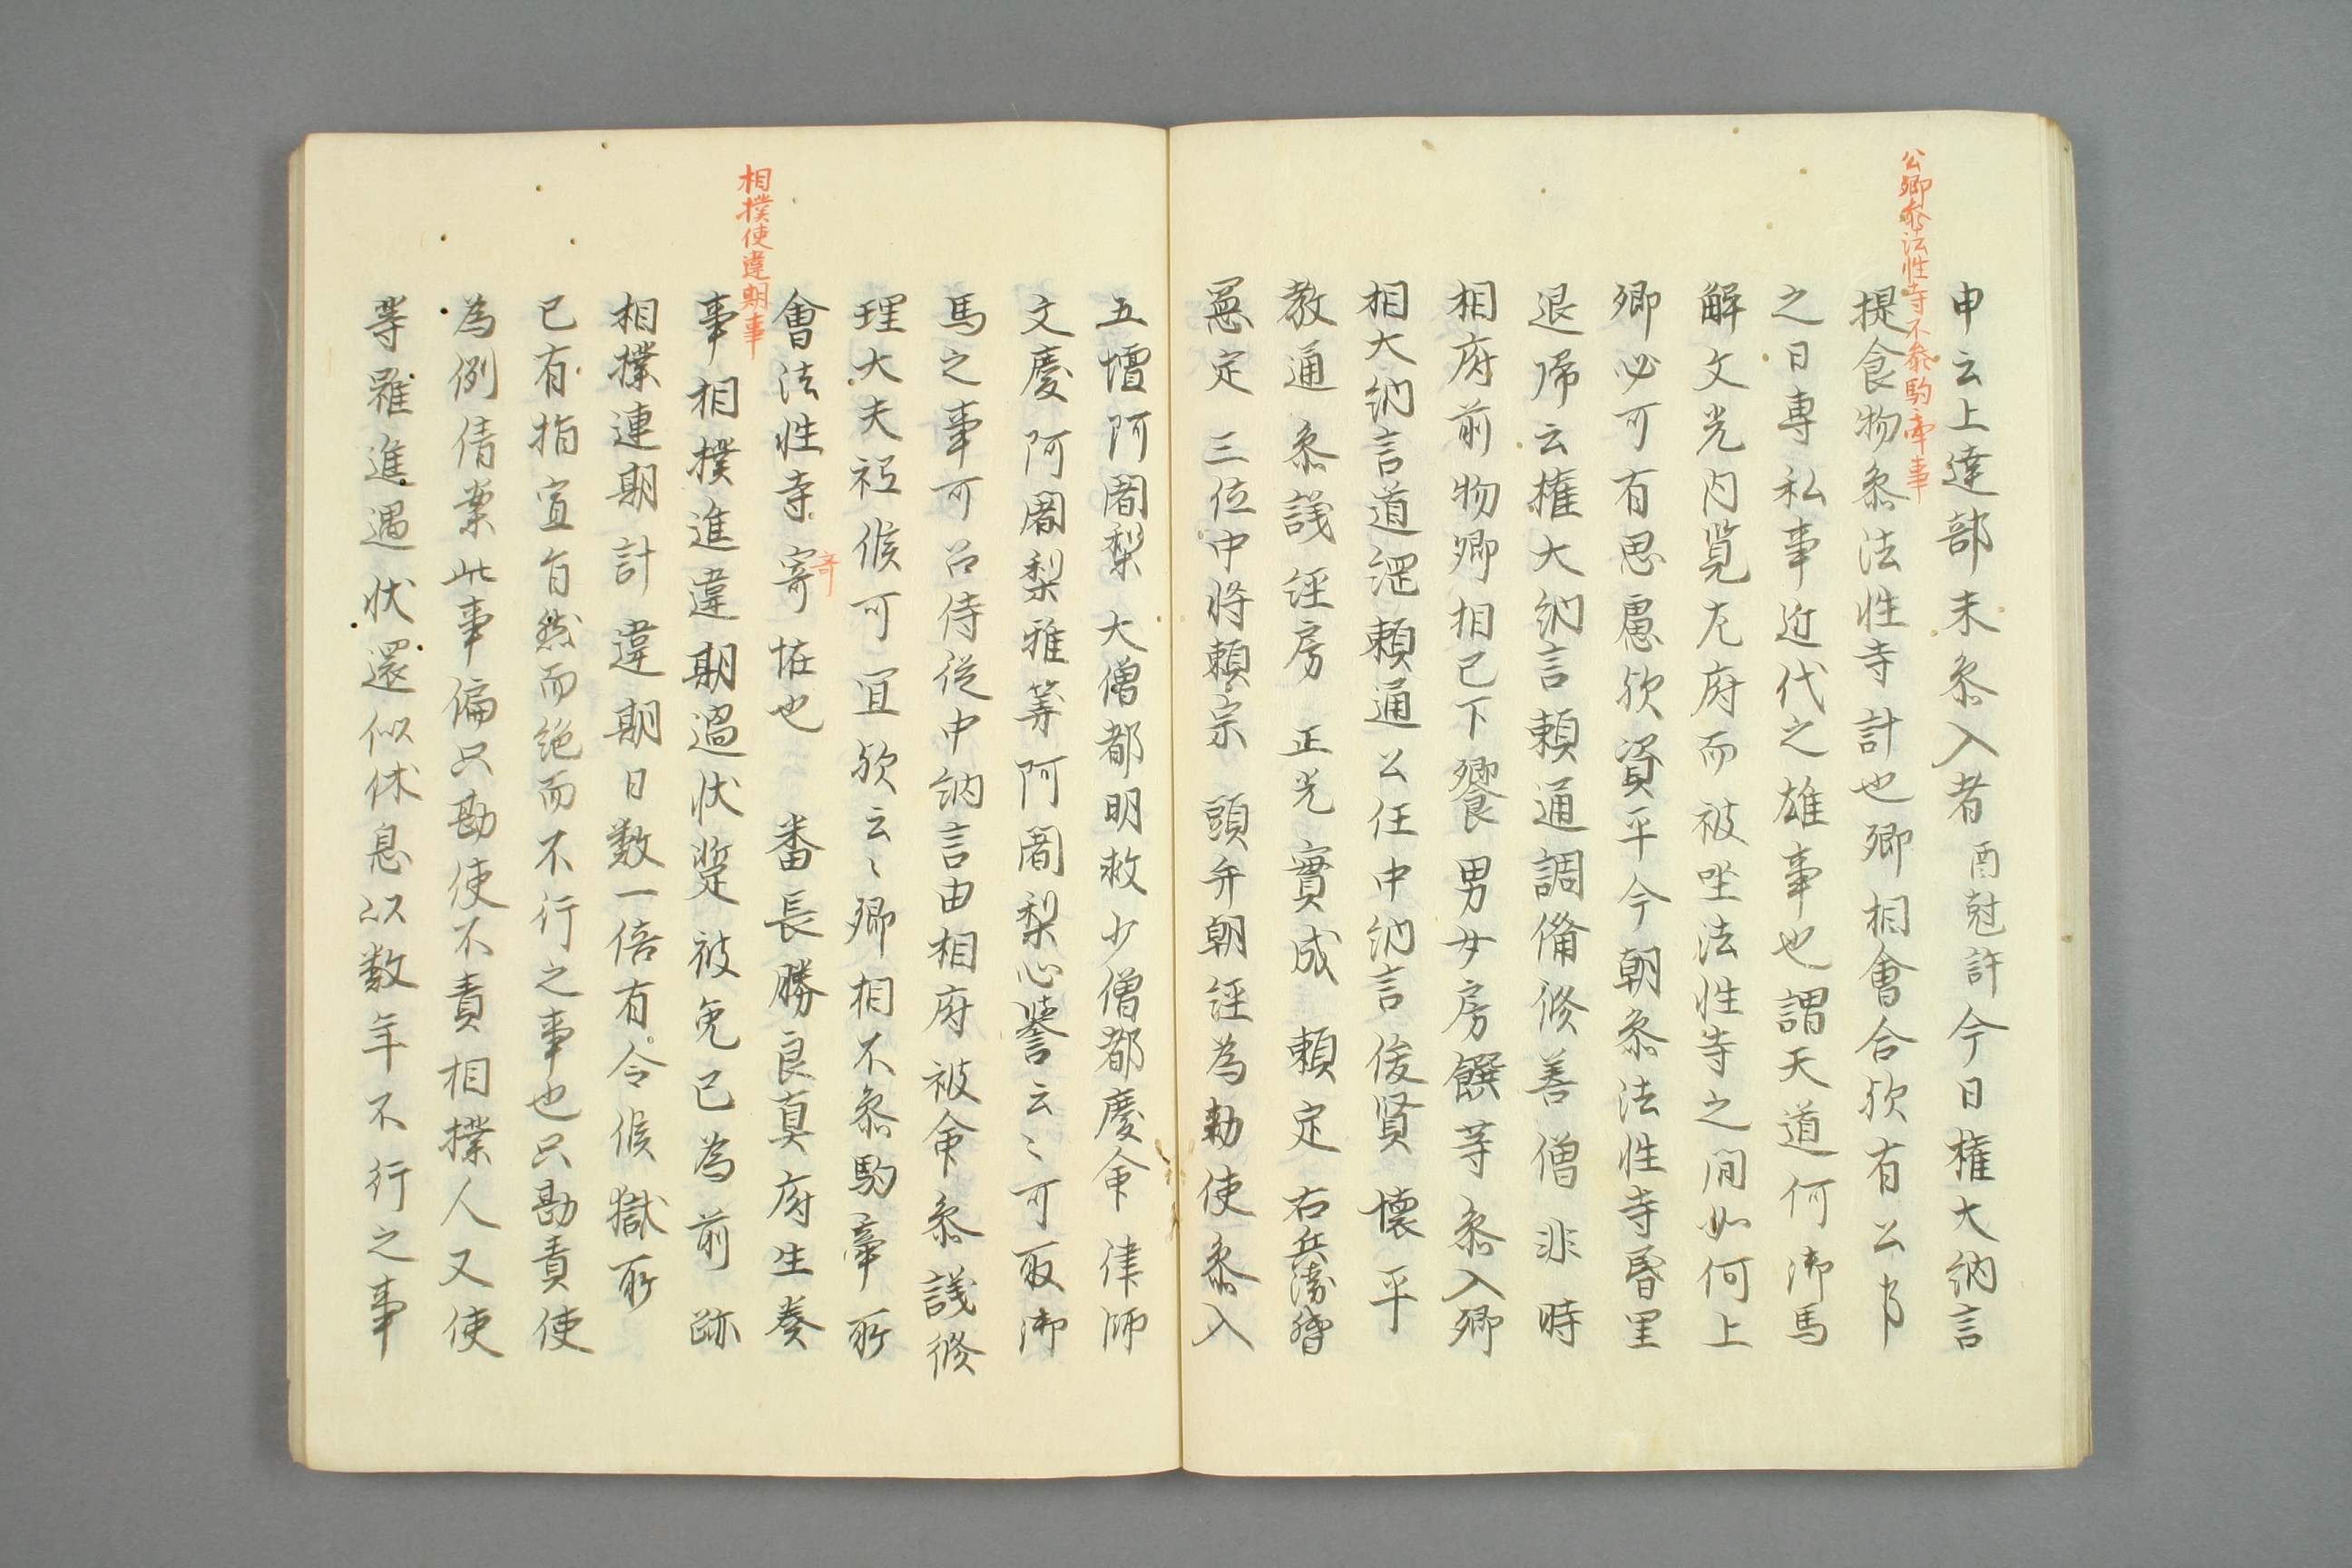 公卿参法性寺不参駒牽事
申云上達部未参入者酉尅許今日権大納言
提食物参法性寺計也卿相會合欤有公事
之日専私事近代之雄事也謂天道何御馬
解文光内覧左府而被坐法性寺之間如何上
卿必可有思慮欤資平今朝参法性寺昏黒
退帰云権大納言頼通調備修善僧非時
相府前物卿相已下饗男女房饌等参入卿
相大納言道綱頼通公任中納言俊賢懐平
教通参議経房正光實成頼定右兵衛督
憲定三位中将頼宗頭弁朝経為勅使参入
五壇阿闍梨大僧都明救少僧都慶命律師
文慶阿闍梨雅等阿闍梨心誉云〻可取御
馬之事可召侍従中納言由相府被命参議修
理大夫祗候可宜欤云〻卿相不参駒牽所
會法性寺寄恠也番長勝良真府生奏
奇
相撲使違期事
事相撲進違期過状蹔被免已為前跡
相撲違期計違期日数一倍有令候獄所
已有指宣旨然而絶而不行之事也只勘責使
為例倩案此事偏只勘使不責相撲人又使
等雖進過状還似休息以数年不行之事